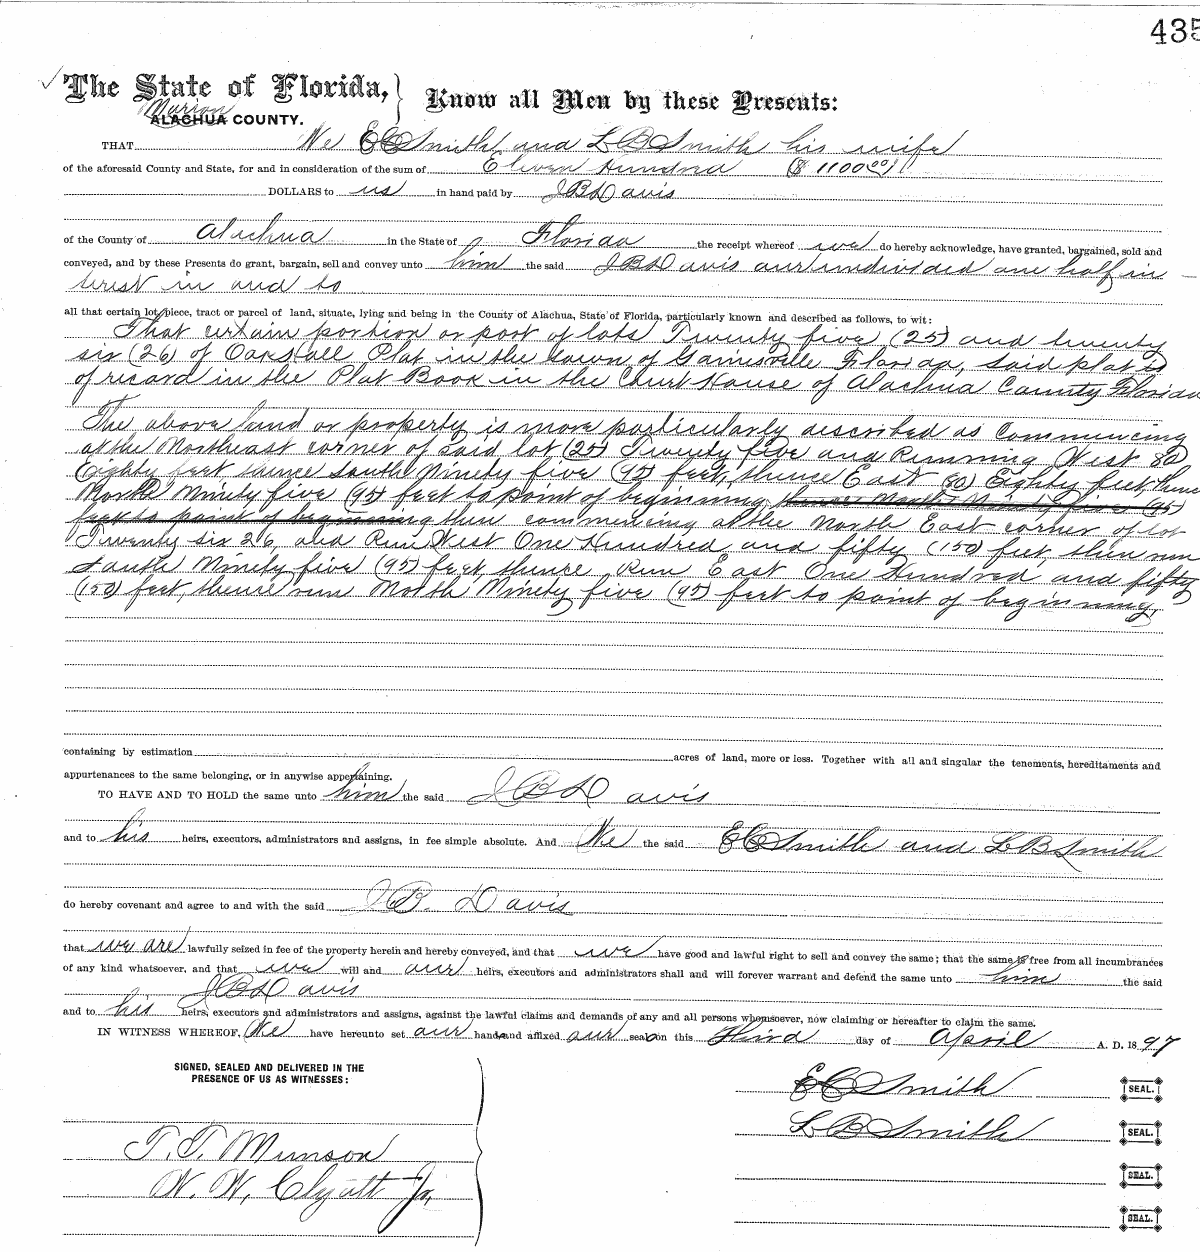 435
The State of Florida, } Know all Men by these Presents:
Marion
ALACHUA COUNTY.
THAT We E C Smith and L B Smith his wife
of the aforesaid County and State, for and in consideration of the sum of Eleven Hundred ($ 1100 00)
DOLLARS to us in hand paid by J B Davis
of the County of Alachua in the State of Florida the receipt whereof we do hereby acknowledge, have granted, bargained, sold and
conveyed, and by these Presents do grant, bargain, sell and convey unto him the said J B Davis our undivided one half in
terest in and to
all that certain lot, piece, tract or parcel of land, situate, lying and being in the County of Alachua, State of Florida, particularly known and described as follows, to wit:
That certain portion or part of lots Twenty five (25) and twenty
six (26) of Plat in the town of Gainesville Florida, said plat is
of record in the Plat Book in the Court House of Alachua County Florida
The above land or property is more particularly described as Commencing
at the Northeast corner of said lot (25) Twenty five and Running West 80
Eighty feet thence South Ninety five (95) feet, thence East (80) Eighty feet, thence
North Ninety five (95) feet to point of beginning thence North Ninety five (95)
feet to point of beginning then commencing at the North East corner of lot
Twenty six 26 and Run West One Hundred and fifty (150) feet, then run
South Ninety five (95) feet thence Run East One Hundred and fifty
(150) feet, thence run North Ninety five (95) feet to point of beginning,
containing by estimation acres of land, more or less. Together with all and singular the tenements, hereditaments and
appurtenances to the same belonging, or in anywise appertaining.
TO HAVE AND TO HOLD the same unto him the said J B Davis
and to his heirs, executors, administrators and assigns, in fee simple absolute. And We the said E C Smith and L B Smith
do hereby covenant and agree to and with the said J B. Davis
that we are lawfully seized in fee of the property herein and hereby conveyed, and that we have good and lawful right to sell and convey the same; that the same is free from all incumbrances
of any kind whatsoever, and that we will and our heirs, executors and administrators shall and will forever warrant and defend the same unto him the said
J B Davis
and to his heirs, executors and administrators and assigns, against the lawful claims and demands of any and all persons whomsoever, now claiming or hereafter to claim the same.
IN WITNESS WHEREOF, We have hereunto set our hands and affixed our seals on this Third day of April A. D. 1897
SIGNED, SEALED AND DELIVERED IN THE
PRESENCE OF US AS WITNESSES:
E C Smith SEAL.
L B Smith SEAL.
T. T. Munson
SEAL.
W. W. Clyatt Jr,
SEAL.